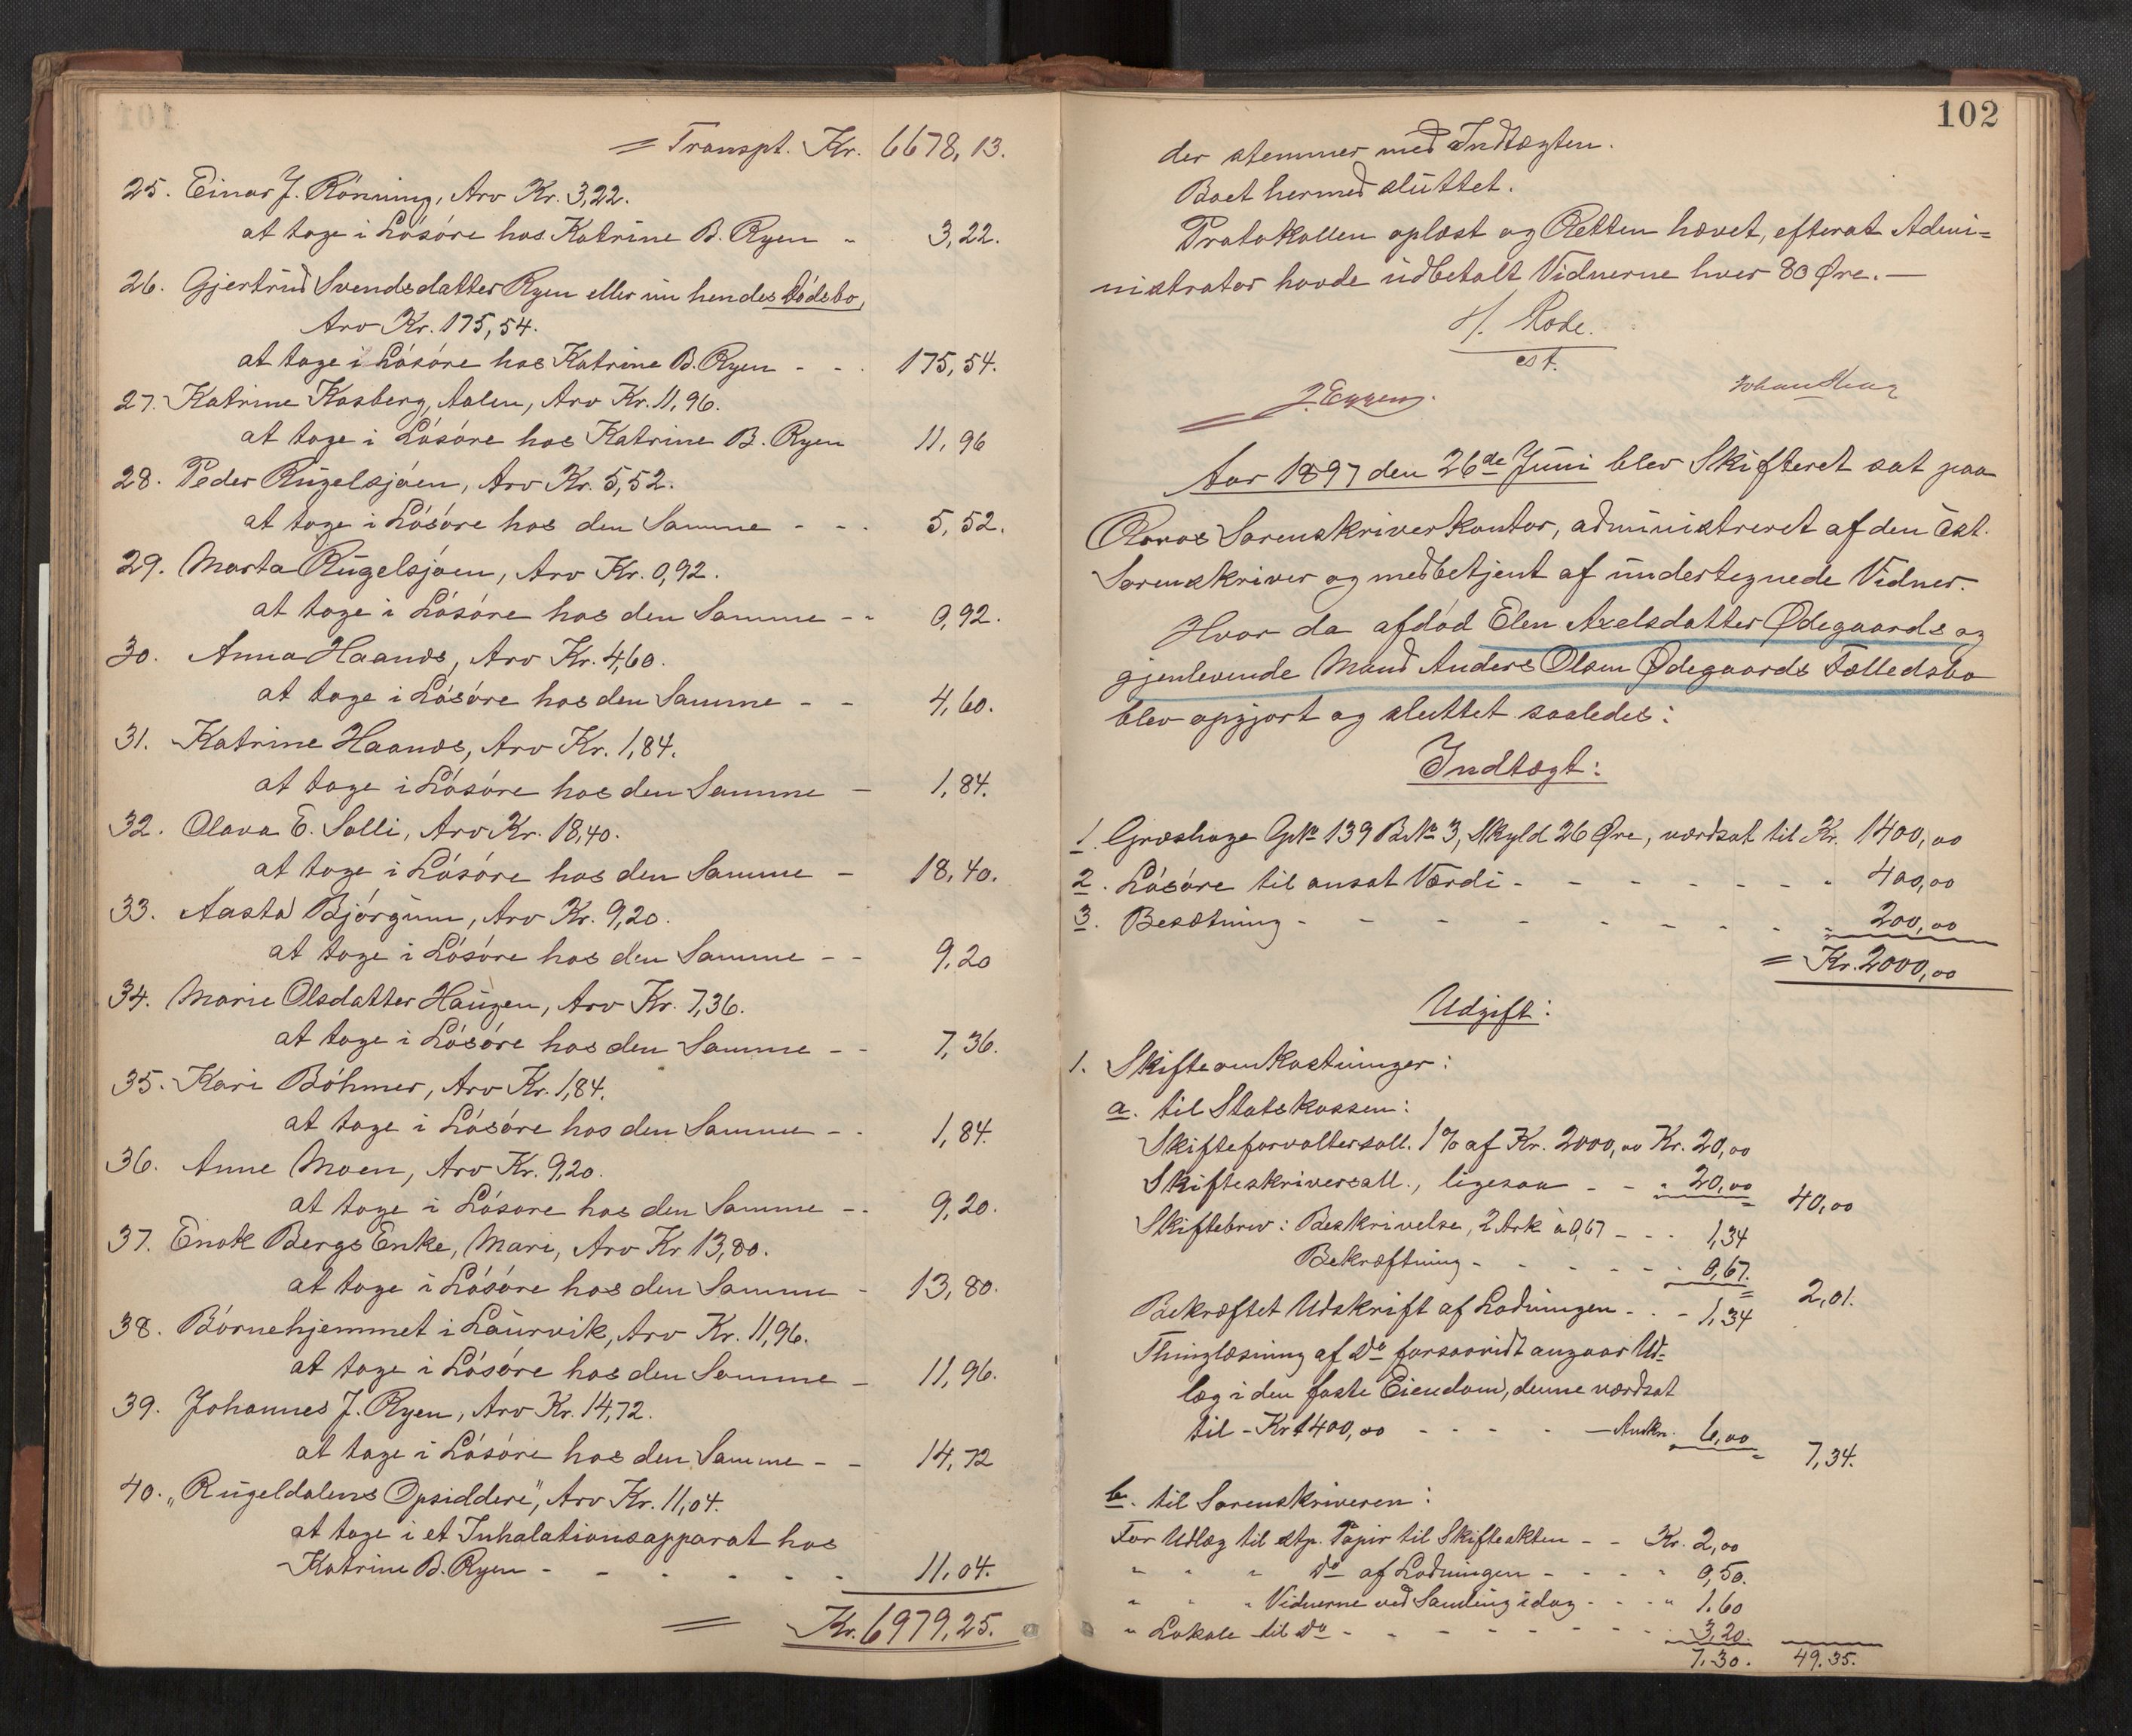 = Transpt. Kr. 6678,13.
25. Einar J. Rónning, Arv Kr. 3,22.
at tage i Lósóre hos Katrine B. Ryen - 3,22.
26. Gjertrud Svendsdatter Ryen eller nu hendes Dódsbo,
Arv Kr. 175,54.
at tage i Lósóre hos Katrine B. Ryen - - 175,54.
27. Katrine Kasberg, Aalen, Arv Kr. 11,96.
at tage i Lósóre hos Katrine B. Ryen 11,96
28. Peder Rugelsjóen, Arv Kr. 5,52.
at tage i Lósóre hos den Samme - - - 5,52.
29. Marta Rugelsjóen, Arv Kr. 0,92.
at tage i Lósóre hos den Samme - - 0,92.
30. Anna Haanes, Arv Kr. 4,60.
at tage i Lósóre hos den Samme - - 4,60.
31. Katrine Haanes, Arv Kr. 1,84.
at tage i Lósóre hos den Samme - 1,84.
32. Olava E. Solli, Arv Kr. 18,40.
at tage i Lósóre hos den Samme - 18,40.
33. Aasta Bjórgum, Arv Kr. 9,20.
at tage i Lósóre hos den Samme - - 9,20
34. Marie Olsdatter Haugen, Arv Kr. 7,36.
at tage i Lósóre hos den Samme - - 7,36.
35. Kari Bóhmer, Arv Kr. 1,84.
at tage i Lósóre hos den Samme - - 1,84.
36. Anne Moen, Arv Kr. 9,20.
at tage i Lósore hos den Samme - - 9,20.
37. Enok Bergs Enke, Mari, Arv Kr 13,80.
at tage i Lósóre hos den Samme - 13,80.
38. Bórnehjemmet i Laurvik, Arv Kr. 11,96.
at tage i Lósóre hos den Samme - 11,96.
39. Johannes J. Ryen, Arv Kr. 14,72.
at tage i Lósóre hos den Samme - - 14,72
40. „Rugeldalens Opsiddere", Arv Kr. 11,04.
at tage i et Inhalationsapparat hos
Katrine B. Ryen - - - - - - 11,04.
= Kr. 6979,25.
102
der stemmer med Indtægten.
Boet hermed sluttet.
Protokollen oplæst og Retten hævet, efterat Admi=
nistrator havde udbetalt Vidnerne hver 80 Øre. —
H. Rode.
cst.
J. Eggen.
Aar 1897 den 26de Juni blev Skifteret sat paa
Røros Sorenskriverkontor, administreret af den cst.
Sorenskriver og medbetjent af undertegnede Vidner.
Hvor da afdód Elen Axelsdatter Ødegaards og
gjenlevende Mand Anders Olsen Ødegaards Fælledsbo
blev opgjort og sluttet saaledes:
Indtægt:
1. Græshage GNo 139 BNo 3, Skyld 26 Øre, værdsat til Kr. 1400,00
2. Lósóre til ansat Værdi - - - - - - - - 400,00
3. Besætning - - - - - - - - - 200,00
= Kr. 2000,00
Udgift:
1. Skifteomkostninger:
a. til Statskassen:
Skifteforvaltersall. 1% af Kr. 2000,00 Kr. 20,00
Skifteskriversall., ligesaa - - " 20,00 40,00
Skiftebrev: Beskrivelse, 2 Ark à 0,67 - - - 1,34
Bekræftning - - - - - - 0,67. 2,01.
Bekræftet Udskrift af Lodningen - - - 1,34
Thinglæsning af Do forsaavidt angaar Ud=
læg i den faste Eiendom, denne værdsat
til - Kr 1400,00 - - - - 6,00 7,34.
b. til Sorenskriveren:
For Udlæg til stp. Papir til Skifteakten - - Kr. 2,00
" " " Do af Lodningen - - - - " 0,50.
" " " Vidnerne ved Samling idag - - - " 1.60
" Lokale til Do - - - - - - - - 3,20.
7.30. 49.35.